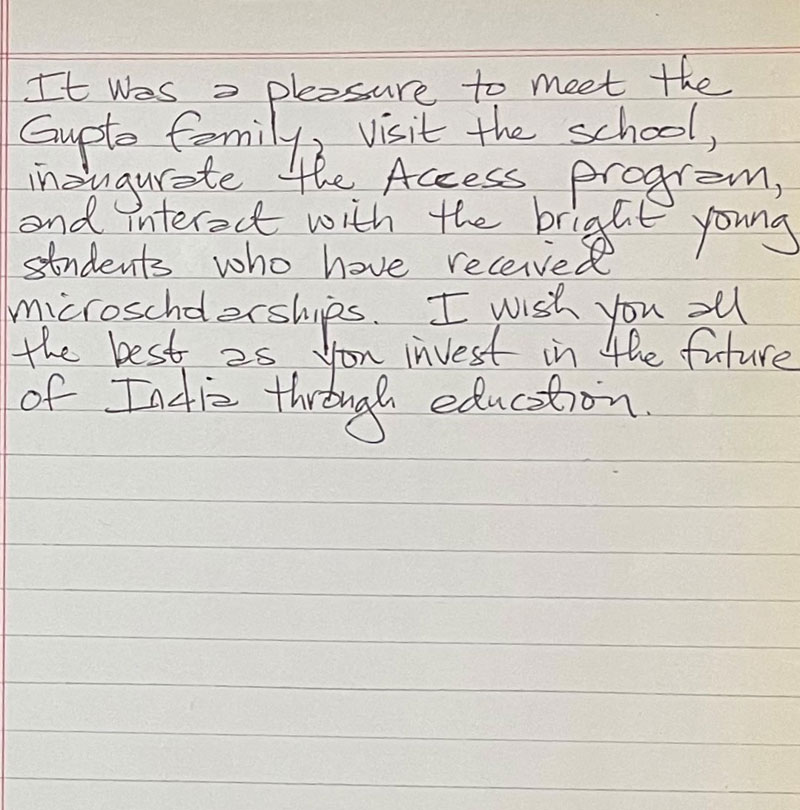 It was a pleasure to meet the
Gupta family, visit the school,
inaugurate the Access program,
and interact with the bright young
students who have received
microscholarships. I wish you all
the best as you invest in the future
of India through education.